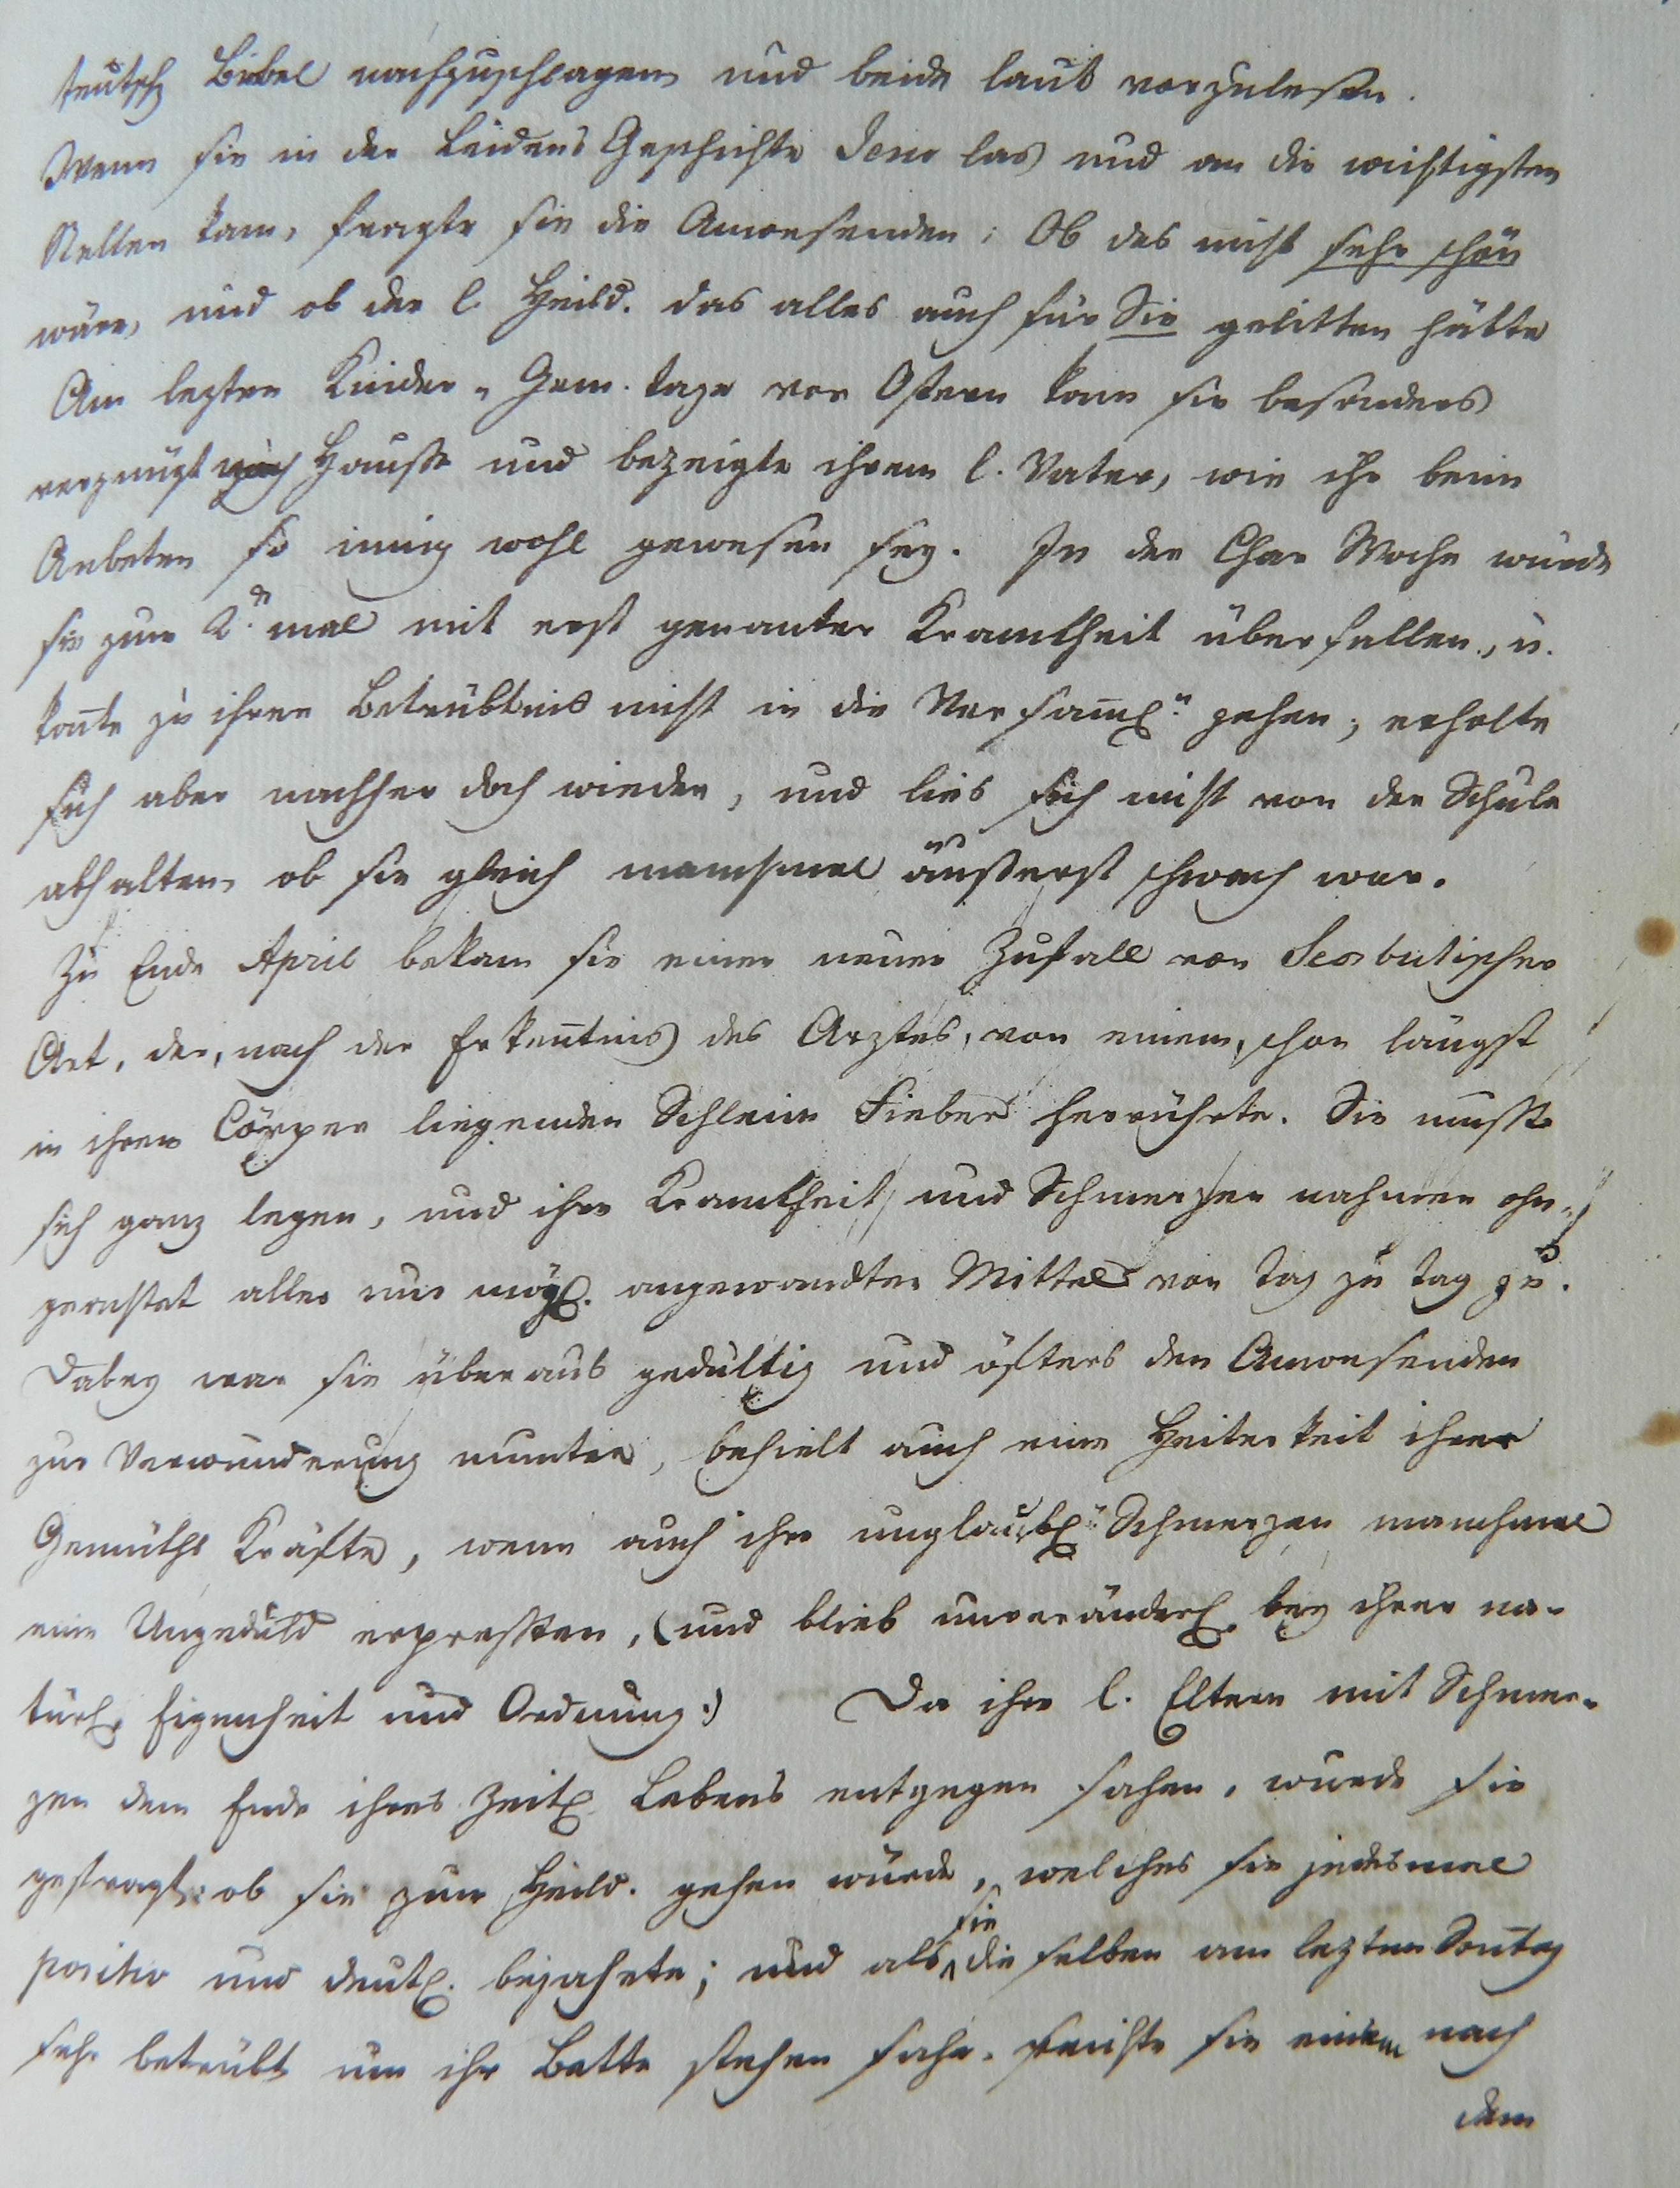 teutsch Bibel nachzuschlagen und beide laut vorzulesen.
Wenn sie in der Leidens Geschichte Jesu las und an die wichtigsten
Stellen kam, fragte sie die Anwesenden: Ob das nicht sehr schön
wäre, und ob der l. Heild. das alles auch für Sie gelitten hätte
Am lezten Kinder-Gem. tage vor Ostern kam sie besonders
vergnügt nach Hausse und bezeigte ihrem l. Vater, wie ihr beim
Anbeten so innig wohl gewesen sey. In der Char Woche wurde
sie zum 2.n mal mit erst genanter Krankheit überfallen, u.
kon̄te zu ihrer Betrübtnis nicht in die Versam̄l.n gehen; erholte
sich aber nachher doch wieder, und lies sich nicht von der Schule
abhalten, ob sie gleich manchmal äußerst schwach war.
Zu Ende April bekam sie einen neuen Zufall von Scorbutischer
Art, der, nach der Erken̄tnis des Arztes, von einem, schon längst
in ihren Cörper liegenden Schleim Fieber herrührte. Sie musste
sich ganz legen, und ihre Krankheit und Schmerzen nahmen ohn-
geachtet aller nur mögl. angewandter Mittel von Tag zu Tag zu.
Dabey war sie überaus gedultig und öfters den Anwesenden
zur Verwunderung munter, behielt auch eine Heiterkeit ihrer
Gemüths Kräfte, wenn auch ihr unglaubl. Schmerzen manchmal
eine Ungeduld erpressten, (und blieb unveränderl. bey ihrer na-
türl. Eigenheit und Ordnung:) Da ihre l. Eltern mit Schmer-
zen dem Ende ihres Zeitl. Lebens entgegen sahen, wurde sie
gefragt: ob sie zum Heild. gehen würde, welches sie jedesmal
positiv und deutl. bejahete; und als sie die selben am lezten Son̄tag
sehr betrübt um ihr Bette stehen sahe, reichte sie einem nach
dem